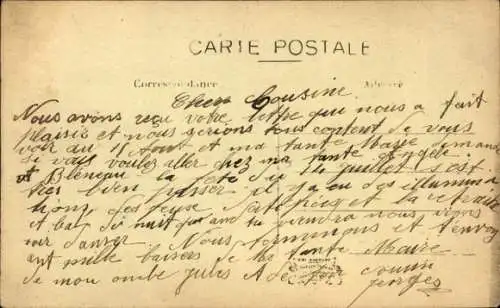 CARTE POSTALE
Correspondance Adresse
Cher Cousine
Nous avons reçu votre lettre qui nous a fait
plaisir et nous serions tous content de vous
voir au 15 Aout et ma tante Marie demande
si vous voulez aller chez ma tante Angèle
et Bléneau la fête du 14 juillet s'est
tres bien passer il y a eu des illumina
tions, des jeux et la retraite
et bal de nuit quand tu viendra nous irons
danser. Nous terminons et t'envoy
ant mille baisers de ta tante Marie
de mon oncle jules et de ton cousin